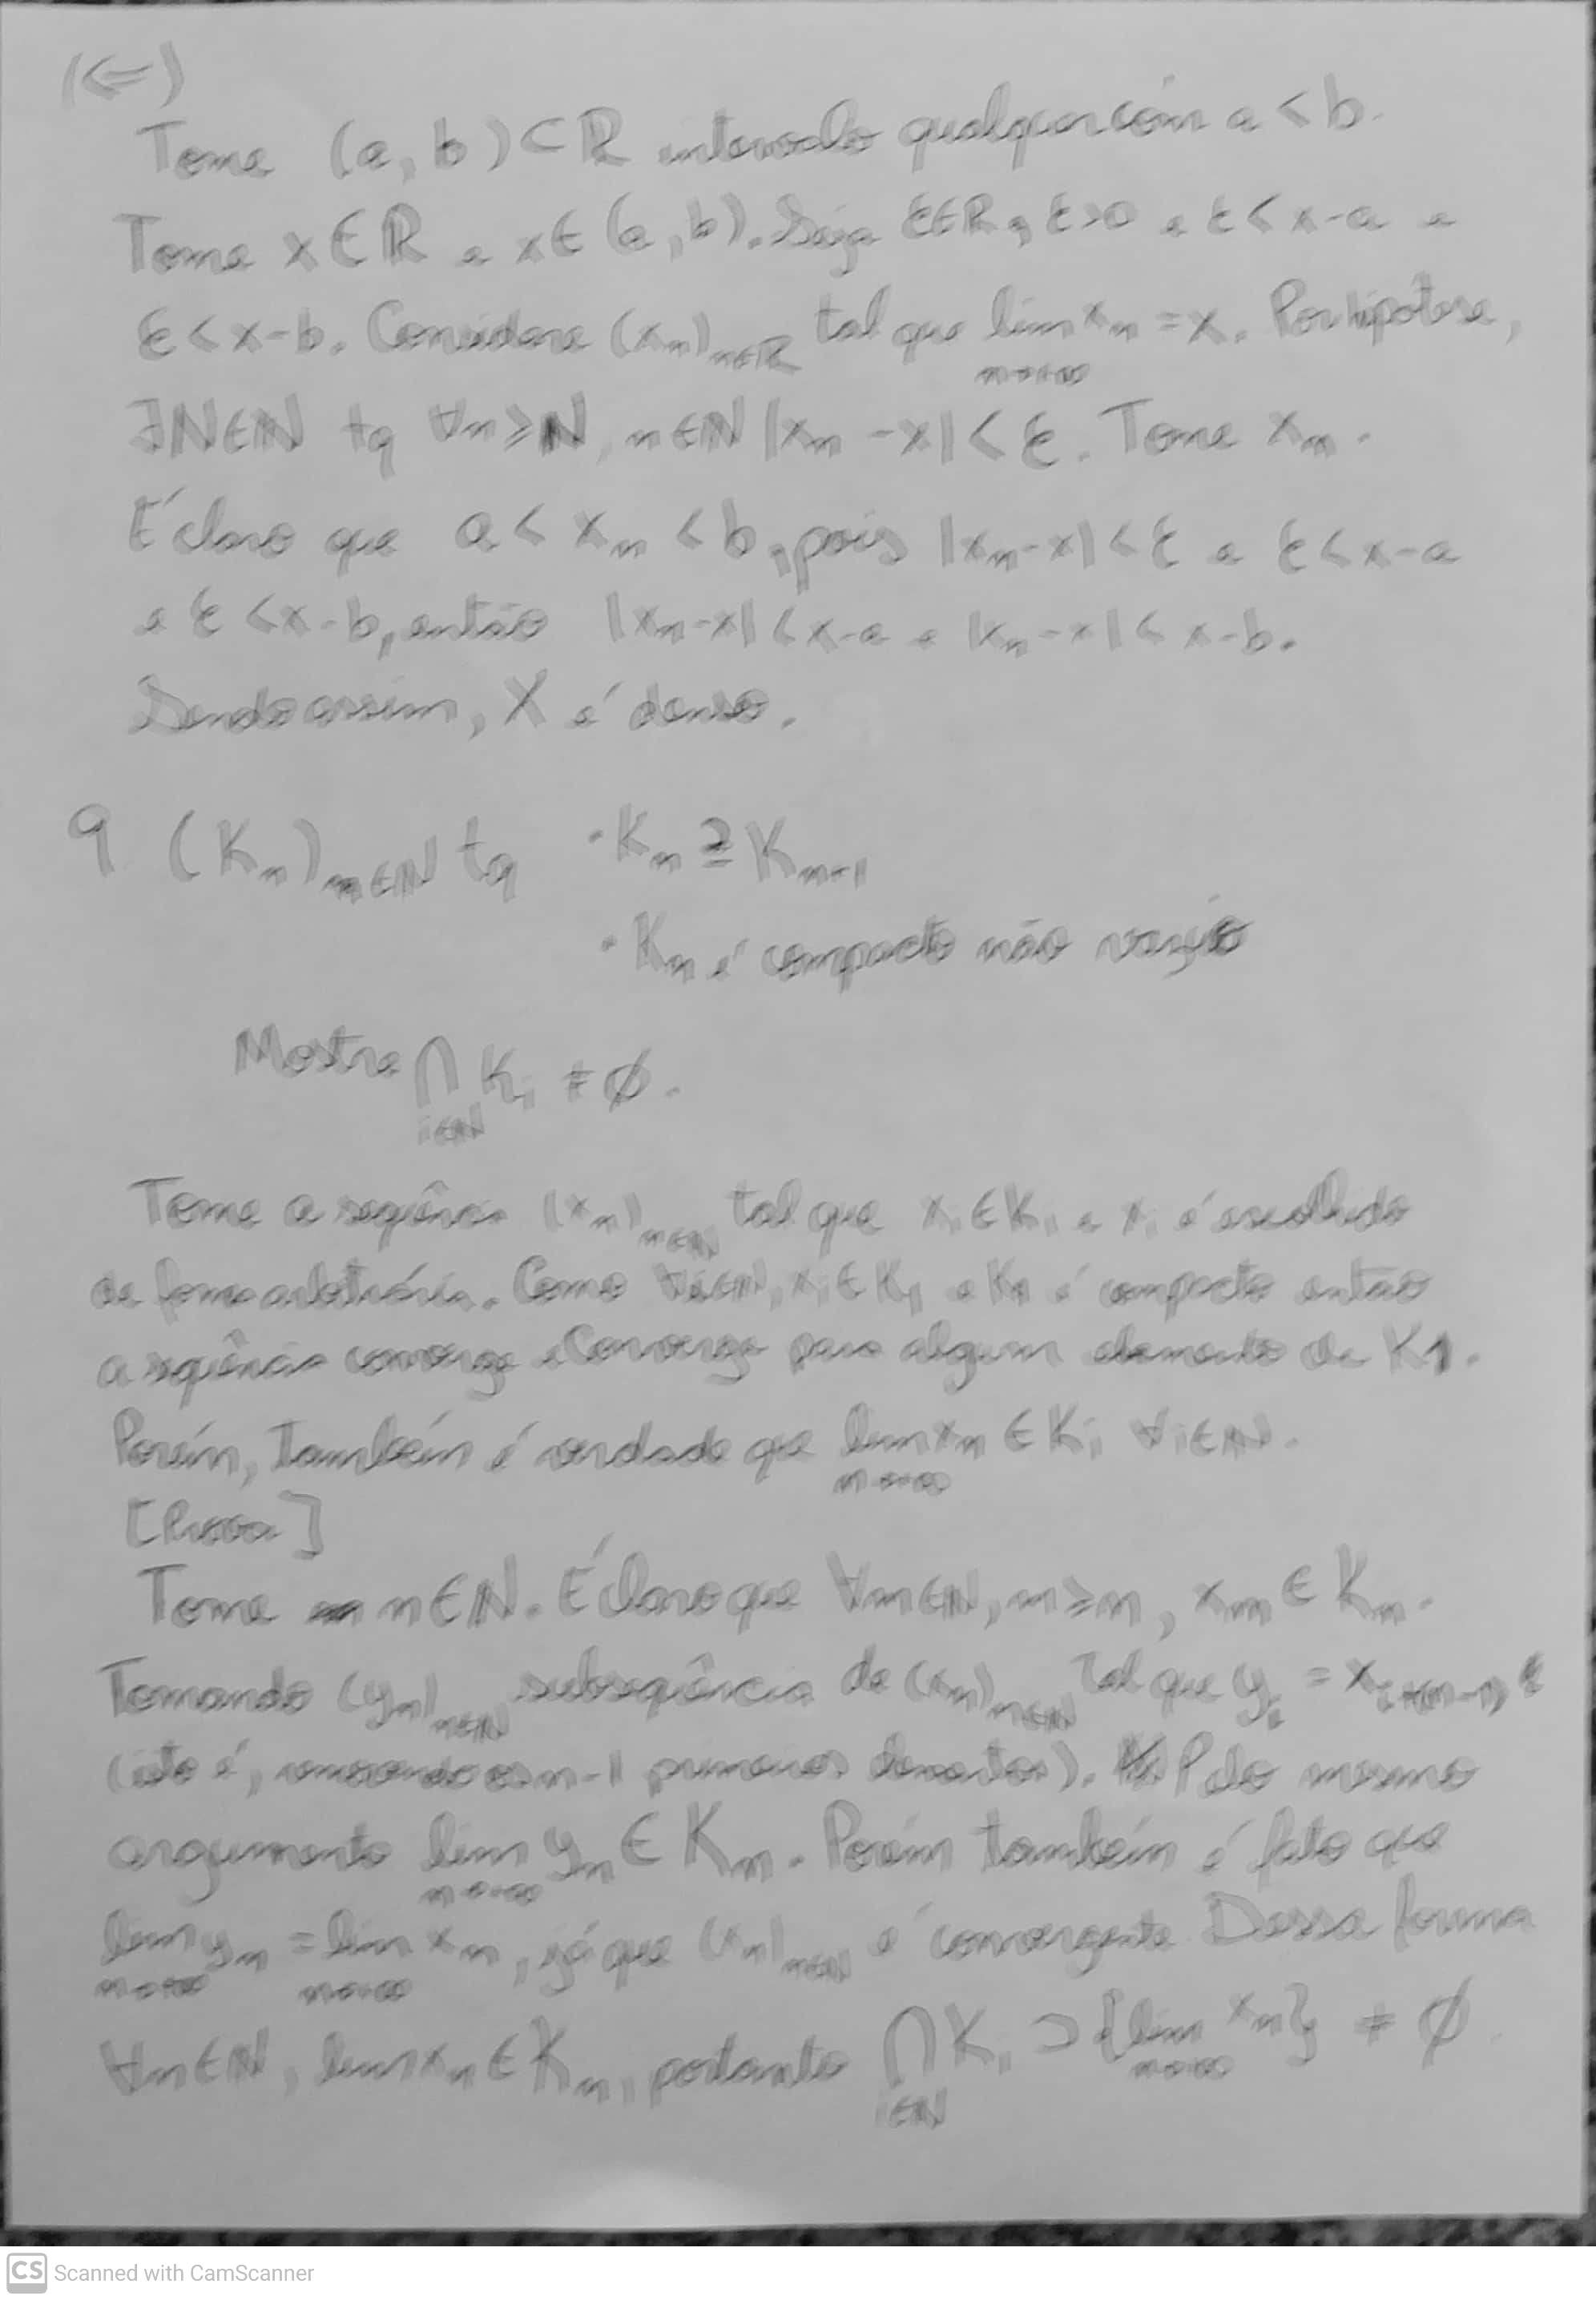 (⇐)
Tome (a, b) ⊂ ℝ intervalo qualquer com a < b.
Tome x ∈ ℝ e x ∈ (a, b). Seja ε∈ℝ, ε>0 e ε < x-a e
ε < x-b. Considere (xₙ)ₙ∈ℝ tal que lim xₙ = x. Por hipótese,
n→+∞
∃N∈ℕ tq ∀n≥N, n∈ℕ |xₙ - x| < ε. Tome xₙ.
É claro que a < xₙ < b, pois |xₙ-x| < ε e ε < x-a
e ε < x-b, então |xₙ-x| < x-a e |xₙ-x| < x-b.
Sendo assim, X é denso.
9 (Kₙ)ₙ∈ℕ tq · Kₙ ⊇ Kₙ₊₁
· Kₙ é compacto não vazio
Mostre ⋂ Kᵢ ≠ ∅.
i∈ℕ
Tome a seqência (xₙ)ₙ∈ℕ tal que xᵢ ∈ Kᵢ e xᵢ é escolhido
de forma arbitrária. Como ∀i∈ℕ, xᵢ ∈ K₁ e K₁ é compacto então
a sequência converge e converge para algum elemento de K1.
Porém, também é verdade que lim xₙ ∈ Kᵢ ∀i∈ℕ.
n→∞
[Prova]
Tome n∈ℕ. É claro que ∀m∈ℕ, m≥n, xₘ ∈ Kₙ.
Tomando (yₙ)ₙ∈ℕ subseqência de (xₙ)ₙ∈ℕ tal que yᵢ = xᵢ₊₍ₙ₋₁₎
(isto é, removendo os n-1 primeiros elementos). Pelo mesmo
argumento lim yₙ ∈ Kₙ. Porém também é fato que
n→∞
lim yₙ = lim xₙ, já que (xₙ)ₙ∈ℕ é convergente Dessa forma
n→∞ n→∞
∀n∈ℕ, lim xₙ ∈ Kₙ, portanto ⋂ Kᵢ ⊃ {lim xₙ} ≠ ∅.
i∈ℕ n→∞
CS Scanned with CamScanner